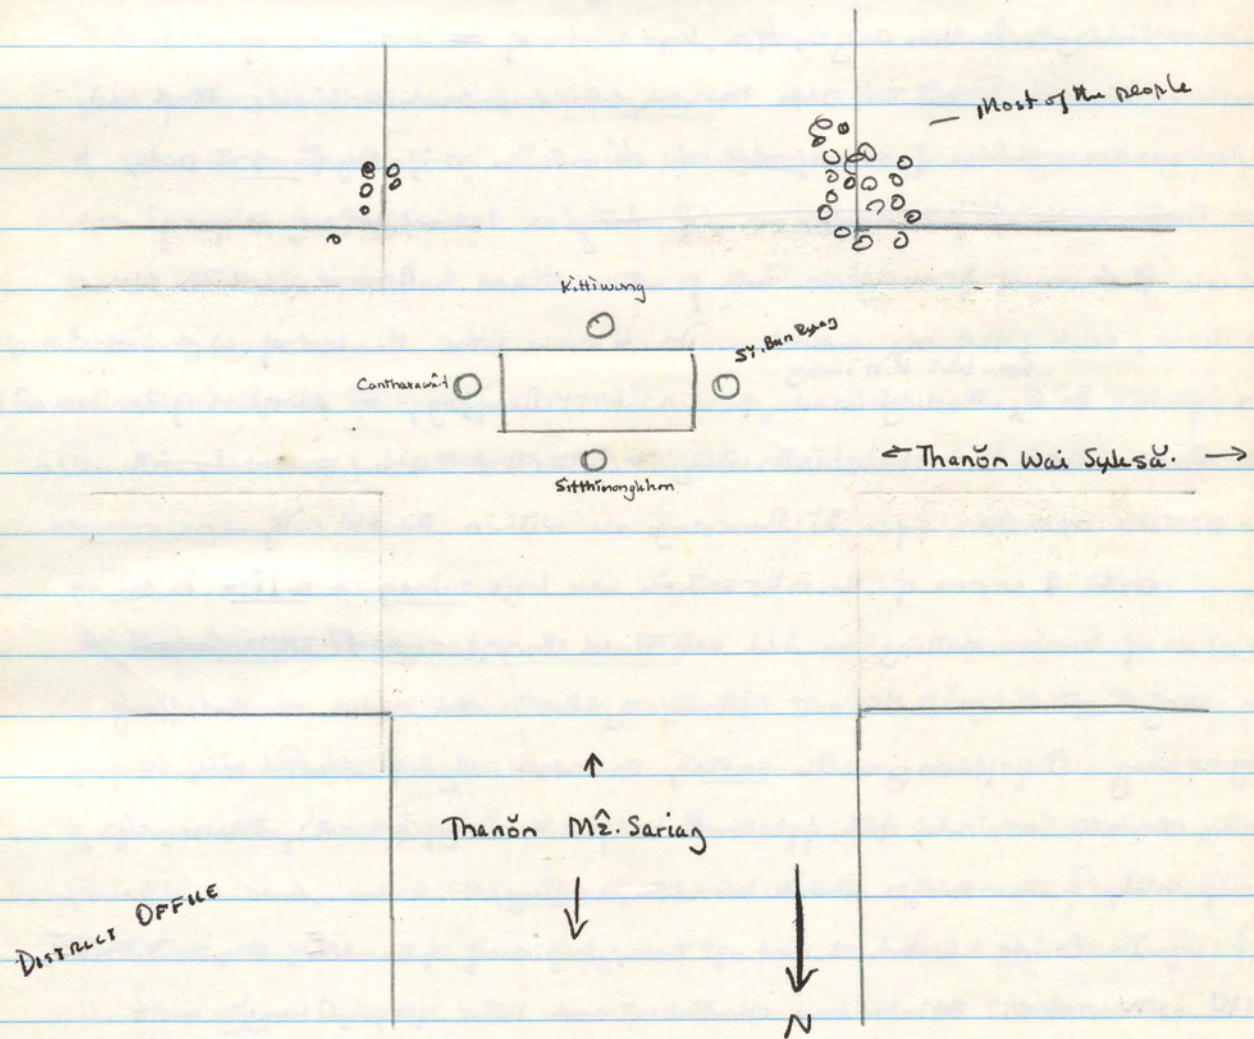 Most of the people
Kittiwong
Sĭ. Bun Ryang
Cantharawât
Sitthimongkhon
Thanŏn Wai Syksă.
Thanŏn Mɛ̂. Sariaŋ
DISTRICT OFFICE
N